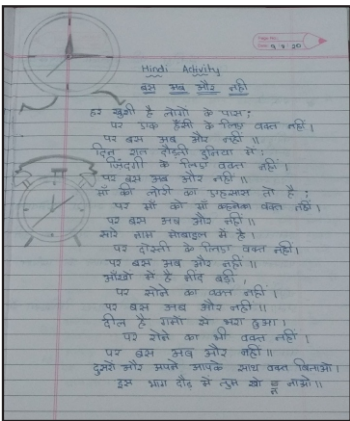 9 3 20
Hindi Activity
बस अब और नहीं
हर खुशी है लोगो के पास;
पर एक हँसी के लिए वक्त नहीं।
पर बस अब और नहीं॥
दिन रात दौड़ती दुनिया में;
जिंदगी के लिए वक्त नहीं।
पर बस अब और नहीं॥
माँ की लोरी का एहसास तो है;
पर माँ को माँ कहनेका वक्त नहीं।
पर बस अब और नहीं॥
सारे नाम मोबाइल में है।
पर दोस्ती के लिए वक्त नहीं।
पर बस अब और नहीं॥
आँखो में है नींद बड़ी,
पर सोने का वक्त नहीं।
पर बस अब और नहीं॥
दील है गमो से भरा हुआ।
पर रोने का भी वक्त नहीं।
पर बस अब और नहीं॥
दुसरो और अपने आपके साथ वक्त बिताओ।
इस भाग दौड़ में तुम खो न जाओ॥